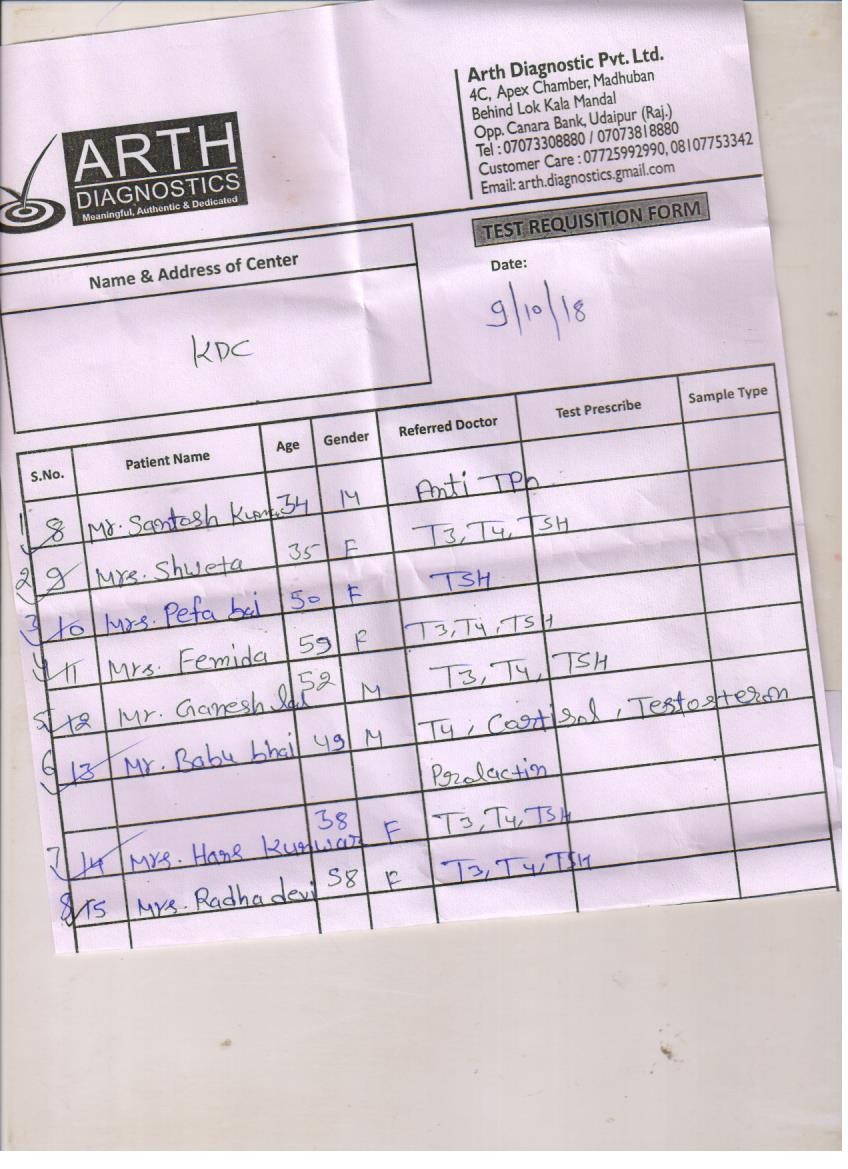 ARTH
DIAGNOSTICS
Meaningful, Authentic & Dedicated
Arth Diagnostic Pvt. Ltd.
4C, Apex Chamber, Madhuban
Behind Lok Kala Mandal
Opp. Canara Bank, Udaipur (Raj.)
Tel : 07073308880 / 07073818880
Customer Care : 07725992990, 08107753342
Email: arth.diagnostics.gmail.com
TEST REQUISITION FORM
Name & Address of Center
Date:
KDC
9/10/18
S.No. Patient Name Age Gender Referred Doctor Test Prescribe Sample Type
1 8 Mr. Santosh Kumar 34 M Anti TPO
2 9 Mrs. Shweta 35 F T3, T4, TSH
3 10 Mrs. Pefa bai 50 F TSH
4 11 Mrs. Femida 59 F T3, T4, TSH
5 12 Mr. Ganesh lal 52 M T3, T4, TSH
6 13 Mr. Babu bhai 49 M T4, Cortisol, Testosteron
Prolactin
7 14 Mrs. Hans Kunwar 38 F T3, T4, TSH
8 15 Mrs. Radha devi 58 F T3, T4, TSH